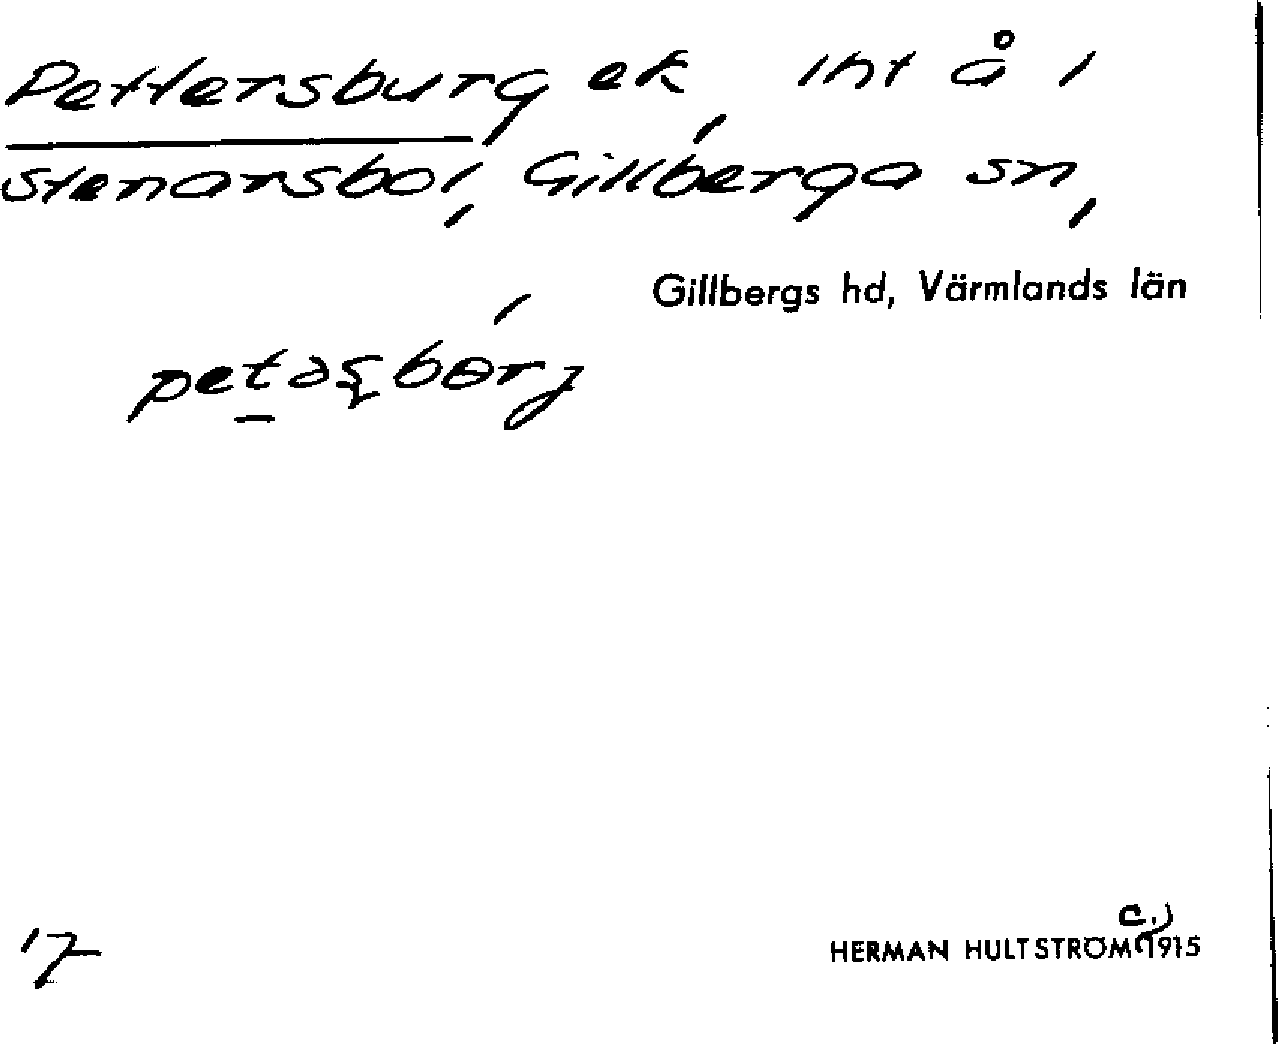 Pettersburg ek, int å 1
Stenarsbol, Gillberga sn,
Gillbergs hd, Värmlands län
c.)
HERMAN HULTSTRÖM 1915
17